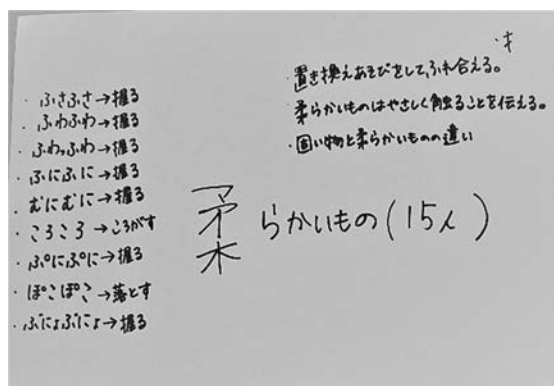 ・ふさふさ→握る
・ふわふわ→握る
・ふわっふわ→握る
・ふにふに→握る
・むにむに→握る
・ころころ→ころがす
・ぷにぷに→握る
・ぽこぽこ→落とす
・ぶにょぶにょ→握る
柔らかいもの(15人)
・置き換えあそびをして、ふれ合える。
・柔らかいものはやさしく触ることを伝える。
・固い物と柔らかいものの違い